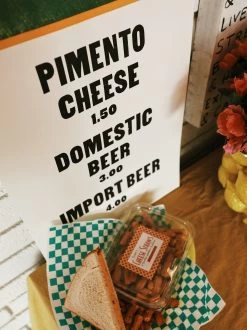 PIMENTO
CHEESE
1.50
DOMESTIC
BEER
3.00
IMPORT BEER
4.00
&